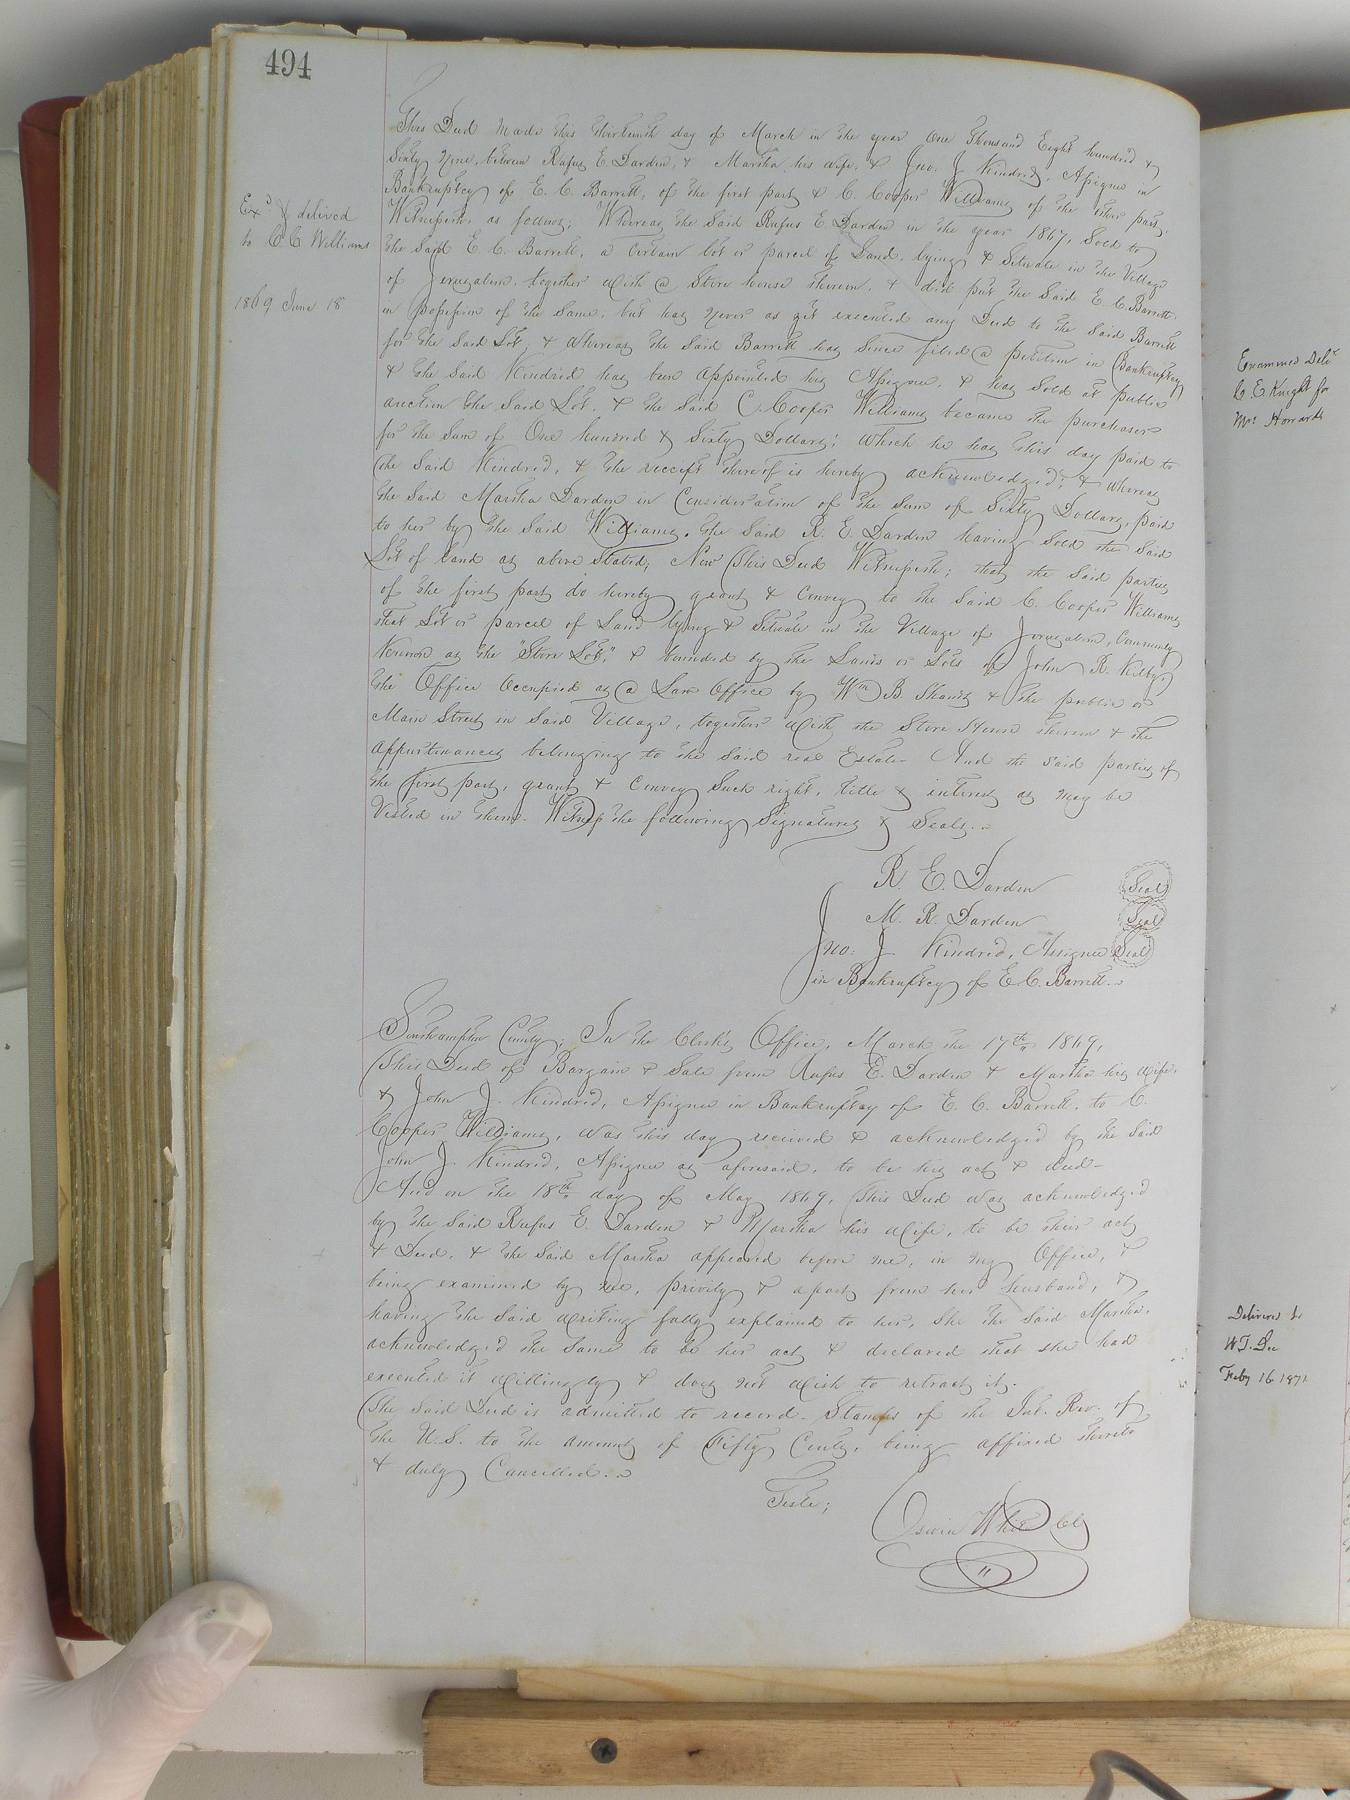 494
This Deed made this thirteenth day of March in the year One Thousand Eight hundred &
Sixty Nine, between Rufus E. Darden, & Martha his wife, & Jno. J. Kindred, Assignee in
Bankruptcy of E. C. Barrett, of the first part & C. Cooper Williams of the other part,
Witnesseth, as follows; Whereas the Said Rufus E Darden in the year 1867, Sold to
the Said E. C. Barrett, a certain lot or parcel of Land, lying & Situate in the Village
of Jerusalem, together with a Store house thereon, & did put the Said E. C. Barrett
in possession of the Same, but has never as yet executed any Deed to the Said Barrett
for the Said Lot, & Whereas the Said Barrett has Since filed a petition in Bankruptcy
& the Said Kindred has been appointed his Assignee, & has Sold at public
auction the Said Lot, & the Said C. Cooper Williams became the purchaser
for the Sum of One hundred & Sixty Dollars; which he has this day paid to
the Said Kindred, & the receipt thereof is hereby acknowledged; & whereas
the Said Martha Darden in Consideration of the Sum of Sixty Dollars, paid
to her by the Said Williams, the Said R. E. Darden having Sold the Said
Lot of land as above Stated; Now This Deed Witnesseth; that the Said parties
of the first part do hereby grant & Convey to the Said C. Cooper Williams
that Lot or parcel of Land lying & Situate in the Village of Jerusalem, Commonly
Known as the "Store Lot," & bounded by the Lands or Lots of John R. Kilby,
the Office Occupied as a Law Office by Wm B Shands & the public or
Main Street in Said Village, together with the Store House thereon & the
appurtenances belonging to the Said real Estate - And the Said parties of
the first part, grant & Convey Such right, title & interest as may be
Vested in them. Witness the following Signatures & Seals.
R. E. Darden Seal
M. R. Darden Seal
Jno. J. Kindred, Assignee Seal
in Bankruptcy of E. C. Barrett.
Southampton County; In the Clerk's Office, March the 17th 1869,
This Deed of Bargain & Sale from Rufus E. Darden & Martha his wife,
& John J. Kindred, Assignee in Bankruptcy of E. C. Barrett, to C.
Cooper Williams, was this day received & acknowledged by the Said
John J. Kindred, Assignee as aforesaid, to be his act & deed -
And on the 18th day of May 1869, This Deed was acknowledged
by the Said Rufus E. Darden & Martha his wife, to be their act
& Deed, & the Said Martha appeared before me, in my Office, &
being examined by me, privily & apart from her husband, &
having the Said writing fully explained to her, She the Said Martha,
acknowledged the Same to be her act & declared that she had
executed it willingly & does not wish to retract it.
The Said Deed is admitted to record. Stamps of the Int. Rev. of
the U.S. to the amount of Fifty Cents, being affixed thereto
& duly Cancelled.
Teste;
Oswin White Clk
Exd & delived
to C C Williams
1869 June 18
Examined Deld
C. E Knight for
Mrs Howards
Delivered to
W. T.
Feby 16 1871